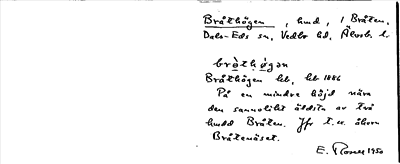 Bråthögen, hmd, i Bråten,
Dals-Eds sn, Vedbo hd, Älvsb. l.
bròthǿgən
Bråthögen hb, hb 1886
På en mindre höjd nära
den sannolikt äldsta av två
hmdd Bråten. Jfr t.u. åkern
Bråtenäset.
E. 1950